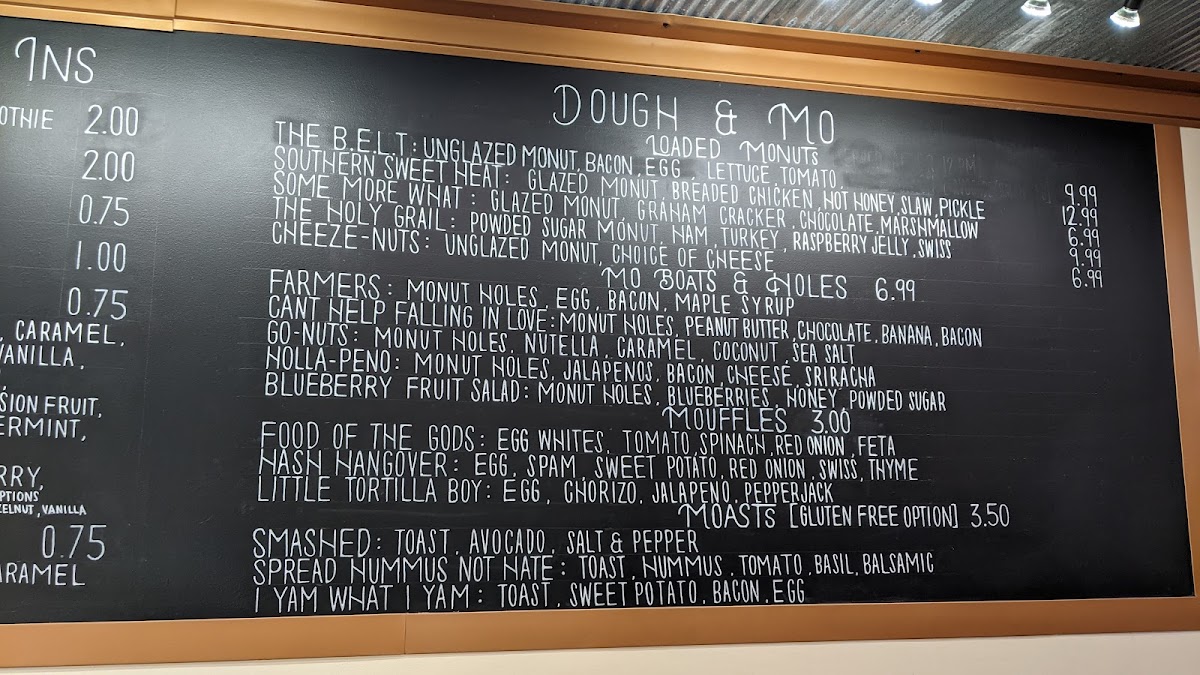 INS
OTHIE 2.00
2.00
0.75
1.00
0.75
, CARAMEL,
VANILLA,
SION FRUIT,
ERMINT,
RRY,
PTIONS
ZELNUT, VANILLA
0.75
ARAMEL
DOUGH & MO
LOADED MONUTS
THE B.E.L.T: UNGLAZED MONUT, BACON, EGG, LETTUCE, TOMATO, 9.99
SOUTHERN SWEET HEAT: GLAZED MONUT, BREADED CHICKEN, HOT HONEY, SLAW, PICKLE 12.99
SOME MORE WHAT: GLAZED MONUT, GRAHAM CRACKER, CHOCOLATE, MARSHMALLOW 6.99
THE HOLY GRAIL: POWDED SUGAR MONUT, HAM, TURKEY, RASPBERRY JELLY, SWISS 9.99
CHEEZE-NUTS: UNGLAZED MONUT, CHOICE OF CHEESE 6.99
MO BOATS & HOLES 6.99
FARMERS: MONUT HOLES, EGG, BACON, MAPLE SYRUP
CANT HELP FALLING IN LOVE: MONUT HOLES, PEANUT BUTTER, CHOCOLATE, BANANA, BACON
GO-NUTS: MONUT HOLES, NUTELLA, CARAMEL, COCONUT, SEA SALT
HOLLA-PENO: MONUT HOLES, JALAPENOS, BACON, CHEESE, SRIRACHA
BLUEBERRY FRUIT SALAD: MONUT HOLES, BLUEBERRIES, HONEY, POWDED SUGAR
MOUFFLES 3.00
FOOD OF THE GODS: EGG WHITES, TOMATO, SPINACH, RED ONION, FETA
HASH HANGOVER: EGG, SPAM, SWEET POTATO, RED ONION, SWISS, THYME
LITTLE TORTILLA BOY: EGG, CHORIZO, JALAPENO, PEPPERJACK
MOASTS [GLUTEN FREE OPTION] 3.50
SMASHED: TOAST, AVOCADO, SALT & PEPPER
SPREAD HUMMUS NOT HATE: TOAST, HUMMUS, TOMATO, BASIL, BALSAMIC
I YAM WHAT I YAM: TOAST, SWEET POTATO, BACON, EGG